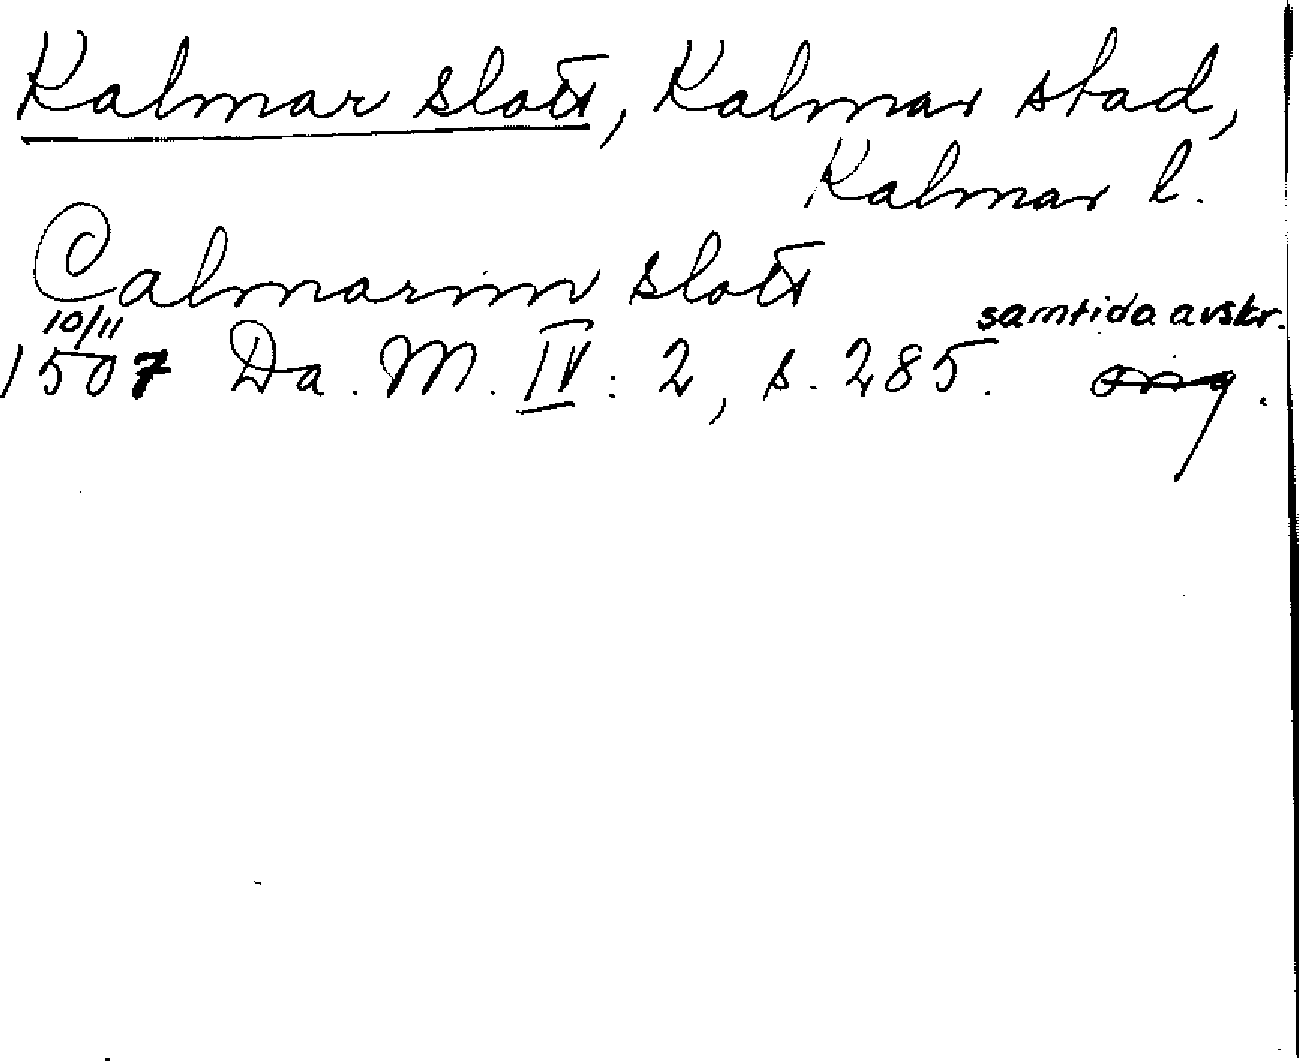 Kalmar slott, Kalmar stad,
Kalmar l.
Calmarnn slott
10/11 samtida avskr.
1507 Da. M. IV: 2, s. 285.